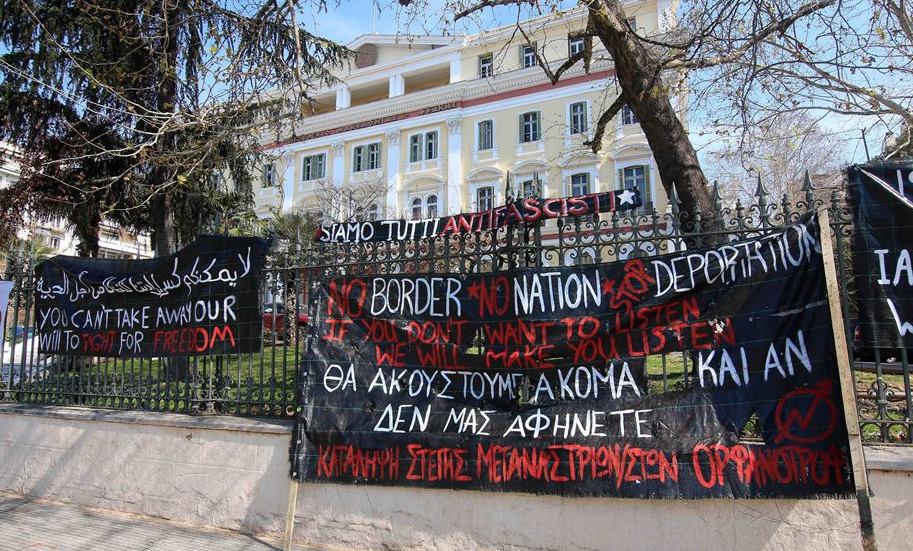 SIAMO TUTTI ANTIFASCISTI
لا يمكنكم كسر من أجل الحرية
YOU CAN'T TAKE AWAY OUR
WILL TO FIGHT FOR FREEDOM
NO BORDER * NO NATION * DEPORTATION
IF YOU DON'T WANT TO LISTEN
WE WILL MAKE YOU LISTEN
ΘΑ ΑΚΟΥΣΤΟΥΜΕ ΑΚΟΜΑ ΚΑΙ ΑΝ
ΔΕΝ ΜΑΣ ΑΦΗΝΕΤΕ
ΚΑΤΑΛΗΨΗ ΣΤΕΓΗΣ